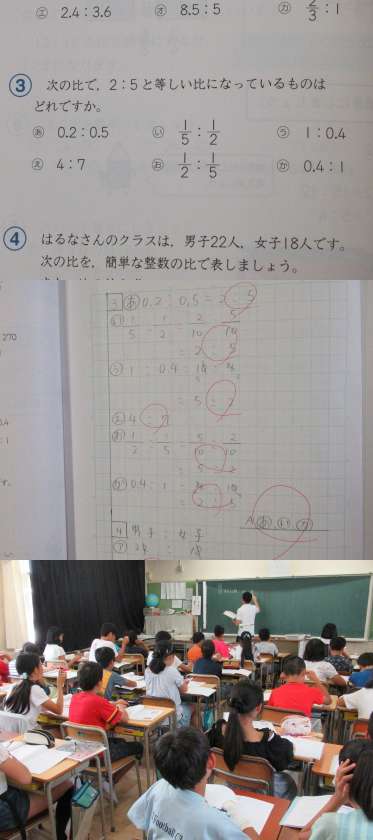 ㋓ 2.4：3.6 ㋔ 8.5：5 ㋕ 2/3：1
③ 次の比で，2：5と等しい比になっているものは
どれですか。
あ 0.2：0.5 い 1/5：1/2 う 1：0.4
え 4：7 お 1/2：1/5 か 0.4：1
④ はるなさんのクラスは，男子22人，女子18人です。
次の比を，簡単な整数の比で表しましょう。
270
3 あ 0.2：0.5＝2：5
い 1/5：1/2＝2/10：5/10
＝2：5
う 1：0.4＝10：4
＝5：2
え 4：7
お 1/2：1/5＝5/10：2/10
＝5：2
か 0.4：1＝4：10
＝2：5
A. あ，い，か
4 男子：女子
Football